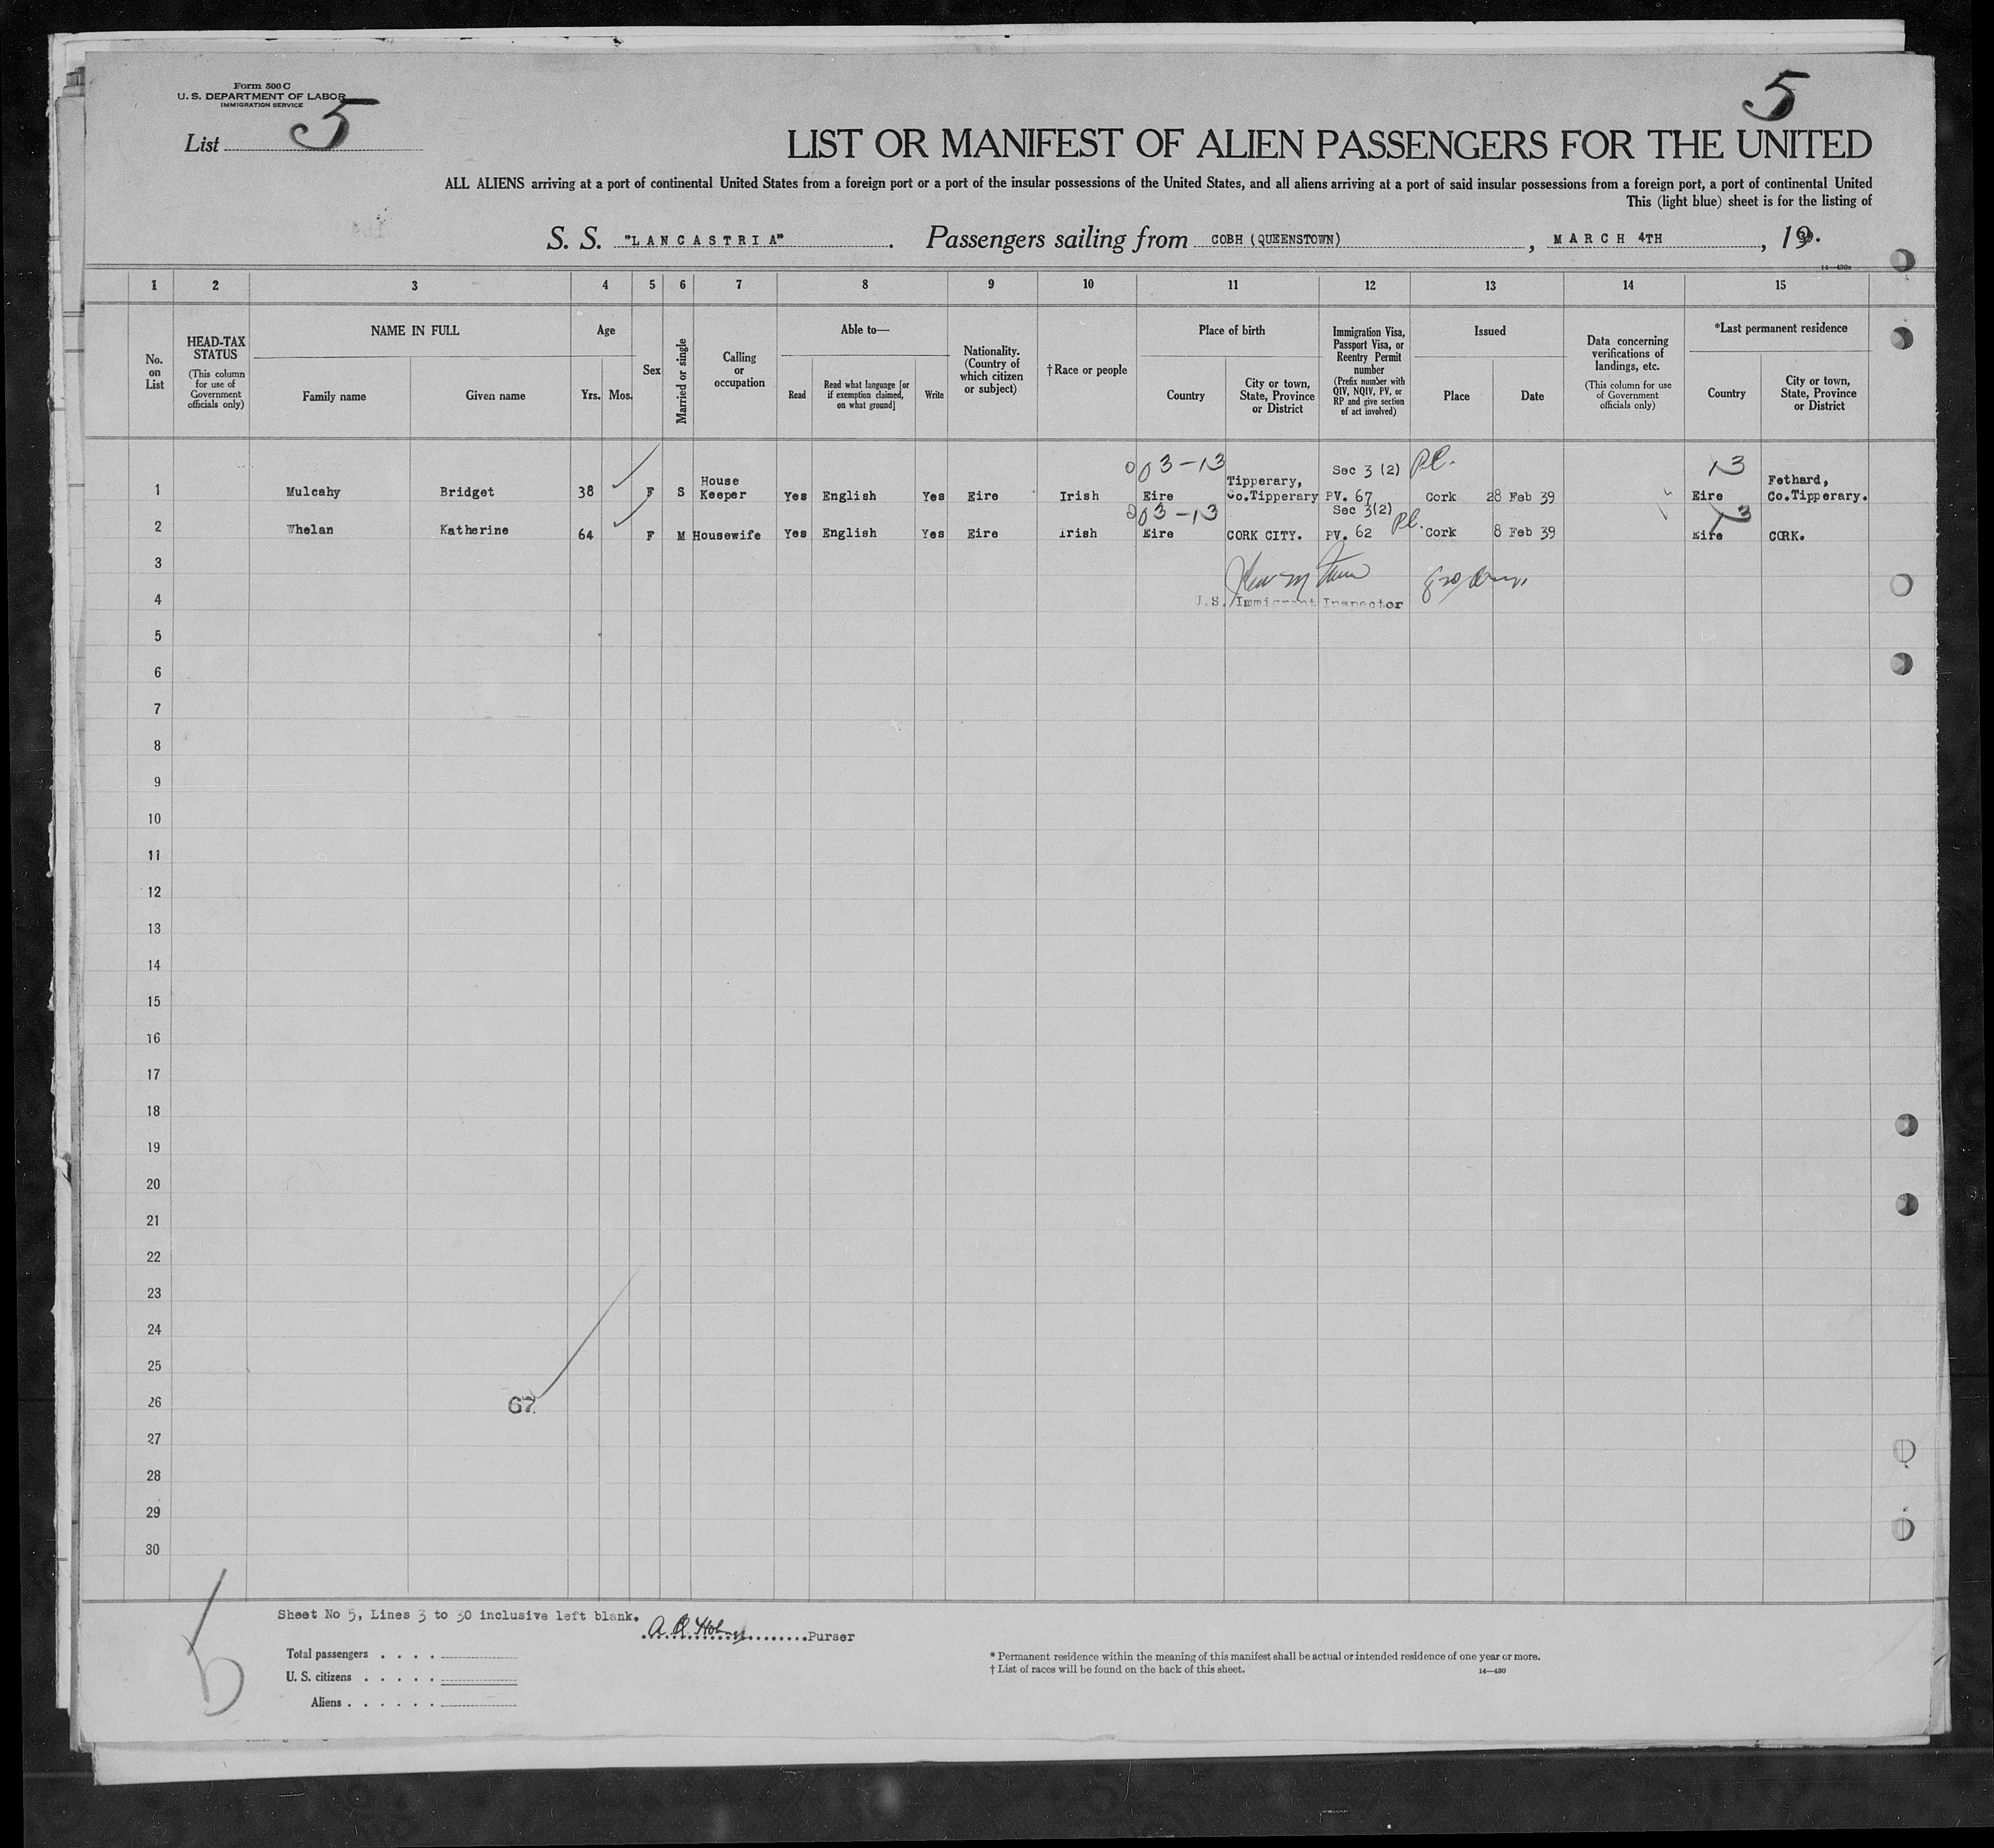 Form 500 C
U. S. DEPARTMENT OF LABOR
IMMIGRATION SERVICE
List 5
5
LIST OR MANIFEST OF ALIEN PASSENGERS FOR THE UNITED
ALL ALIENS arriving at a port of continental United States from a foreign port or a port of the insular possessions of the United States, and all aliens arriving at a port of said insular possessions from a foreign port, a port of continental United
This (light blue) sheet is for the listing of
S. S. "LANCASTRIA". Passengers sailing from COBH (QUEENSTOWN), MARCH 4TH, 19
14—430a
1 2 3 4 5 6 7 8 9 10 11 12 13 14 15
No. on List
HEAD-TAX STATUS (This column for use of Government officials only)
NAME IN FULL
Family name Given name
Age
Yrs. Mos.
Sex
Married or single
Calling or occupation
Able to—
Read Read what language [or if exemption claimed, on what ground] Write
Nationality. (Country of which citizen or subject)
†Race or people
Place of birth
Country City or town, State, Province or District
Immigration Visa, Passport Visa, or Reentry Permit number (Prefix number with QIV, NQIV, PV, or RP and give section of act involved)
Issued
Place Date
Data concerning verifications of landings, etc. (This column for use of Government officials only)
*Last permanent residence
Country City or town, State, Province or District
03-13 Sec 3 (2) Pl. 13
1 Mulcahy Bridget 38 F S House Keeper Yes English Yes Eire Irish Eire Tipperary, Co.Tipperary PV. 67 Cork 28 Feb 39 Eire Fethard, Co.Tipperary.
03-13 Sec 3(2) Pl. 13
2 Whelan Katherine 64 F M Housewife Yes English Yes Eire Irish Eire CORK CITY. PV. 62 Cork 8 Feb 39 Eire CORK.
3
4 U.S. Immigrant Inspector
5
6
7
8
9
10
11
12
13
14
15
16
17
18
19
20
21
22
23
24
25
26 67
27
28
29
30
Sheet No 5, Lines 3 to 30 inclusive left blank.
Purser
Total passengers
U. S. citizens
Aliens
5
* Permanent residence within the meaning of this manifest shall be actual or intended residence of one year or more.
† List of races will be found on the back of this sheet.
14—430